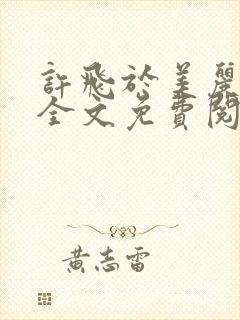 許飛於美麗
全文免費閱
黃志雷